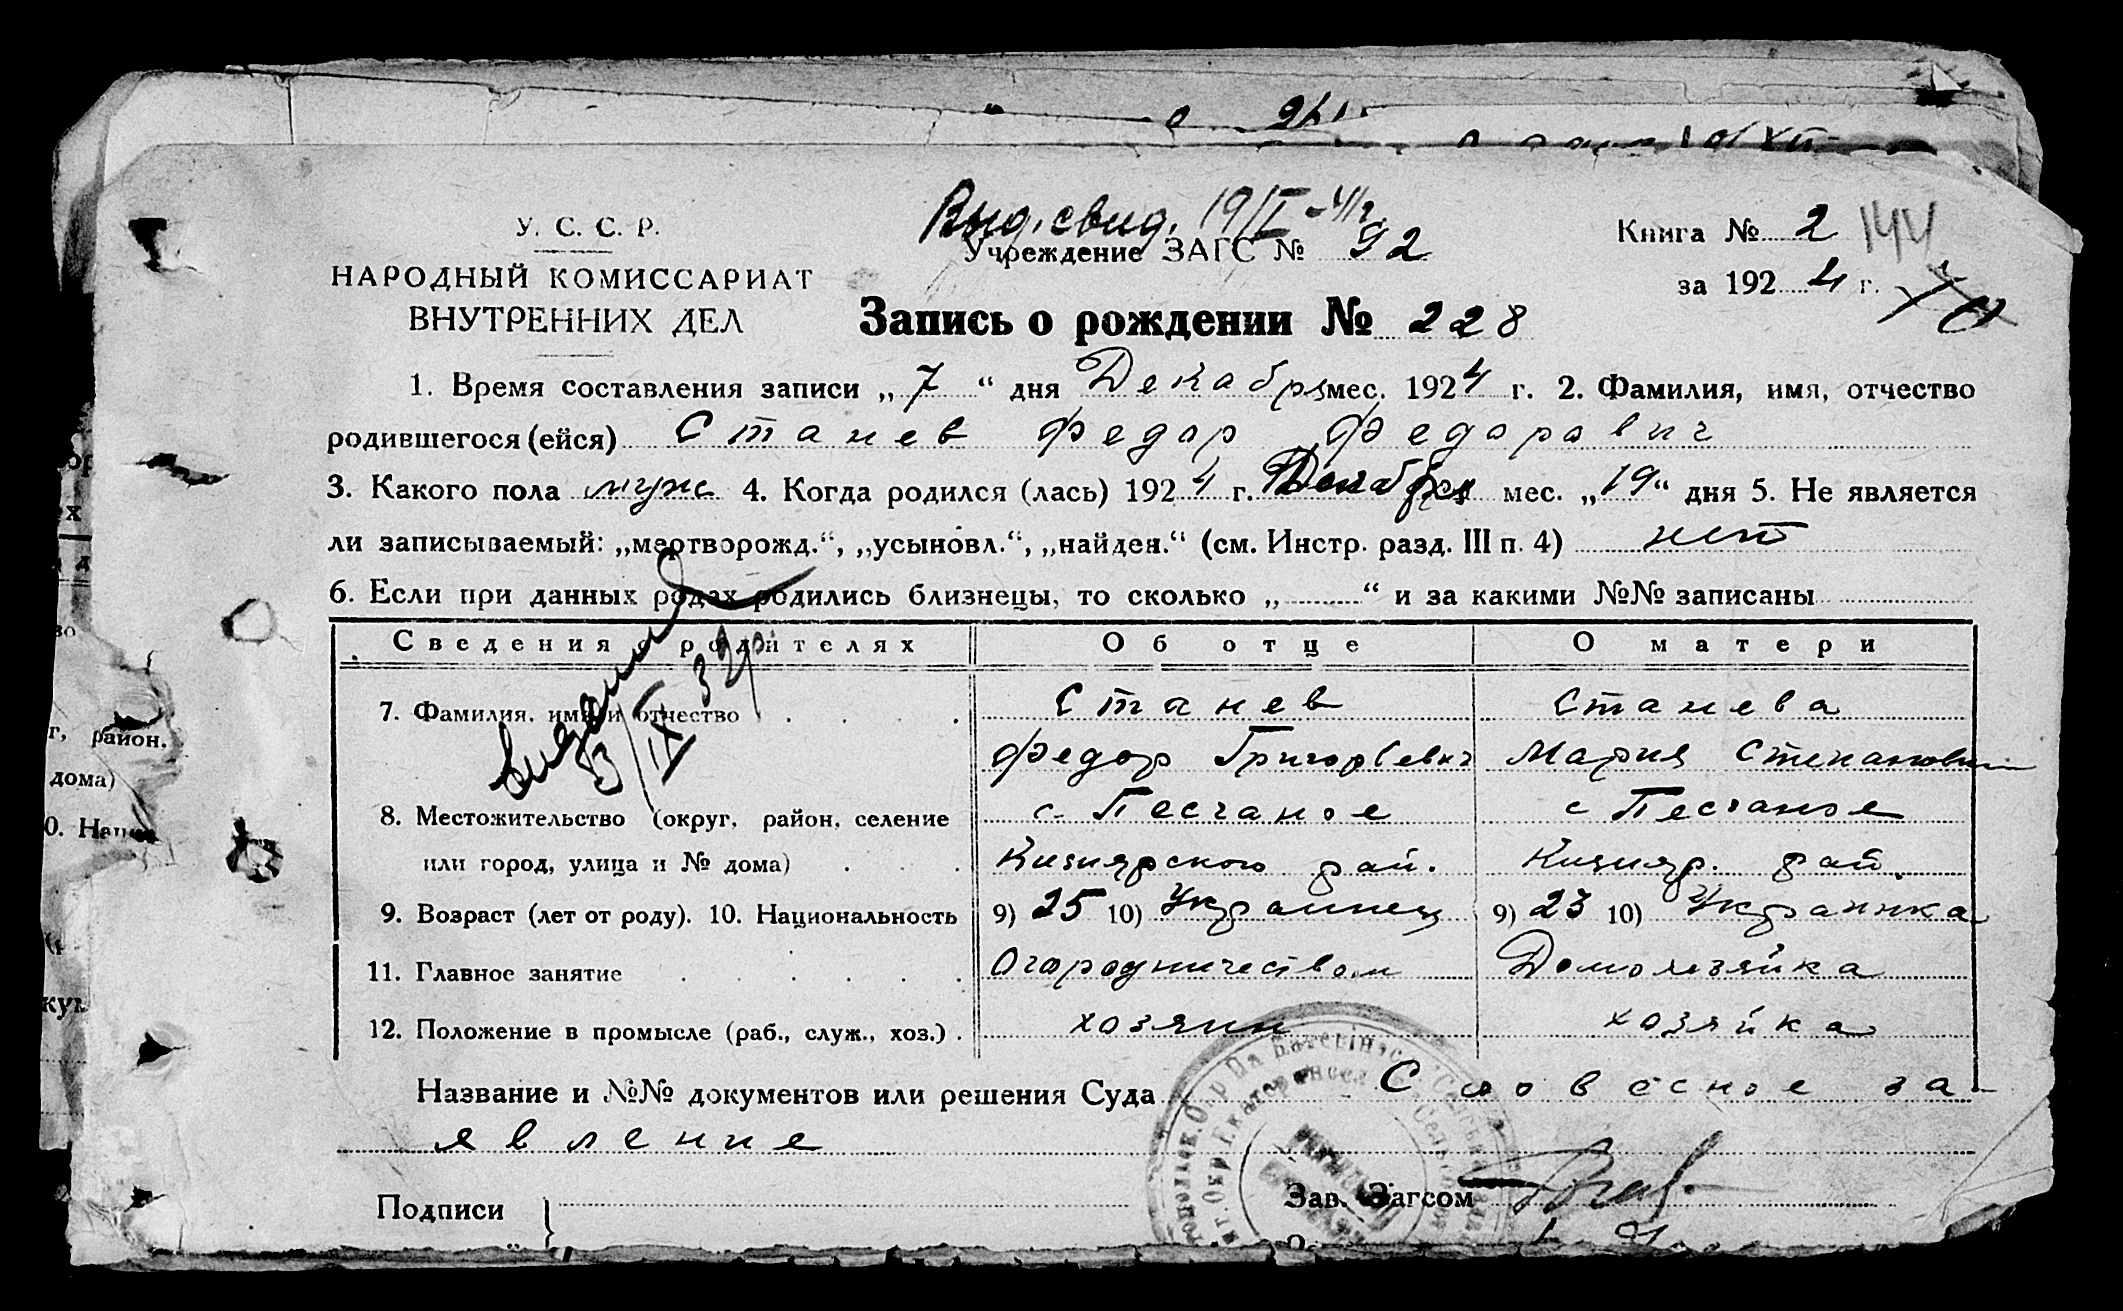 Выд. свид. 19/I-41г.
У. С. С. Р.
Учреждение ЗАГС № 92
Книга № 2 144
НАРОДНЫЙ КОМИССАРИАТ
ВНУТРЕННИХ ДЕЛ
за 1924 г.
Запись о рождении № 228
1. Время составления записи „7“ дня Декабря мес. 1924 г. 2. Фамилия, имя, отчество
родившегося (ейся) Станев Федор Федорович
3. Какого пола муж 4. Когда родился (лась) 1924 г. Декабря мес. „19“ дня 5. Не является
ли записываемый: „мертворожд.“, „усыновл.“, „найден.“ (см. Инстр. разд. III п. 4) нет
6. Если при данных родах родились близнецы, то сколько „ “ и за какими №№ записаны
Сведения о родителях Об отце О матери
7. Фамилия, имя и отчество Станев Станева
Федор Григорьевич Мария Степановн
8. Местожительство (округ, район, селение с. Песчаное с Песчаное
или город, улица и № дома) Кизиярского рай. Кизияр. рай.
9. Возраст (лет от роду). 10. Национальность 9) 25 10) Украинец 9) 23 10) Украинка
11. Главное занятие Огородничеством Домохозяйка
12. Положение в промысле (раб., служ., хоз.) хозяин хозяйка
IX 32г
Название и №№ документов или решения Суда Словесное за-
явление
Подписи
Зав. Загсом
г, район.
дома)